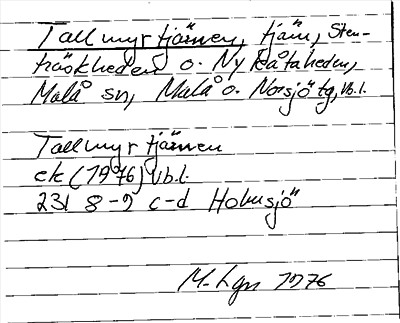 Tallmyrtjärnen, tjärn, Sten-
träskheden o. Nykåtaheden,
Malå sn, Malå o. Norsjö tg, Vb.l.
Tallmyrtjärnen
ek (1976) Vb.l.
23I 8-9 c-d Holmsjö
M. Lgn 1976